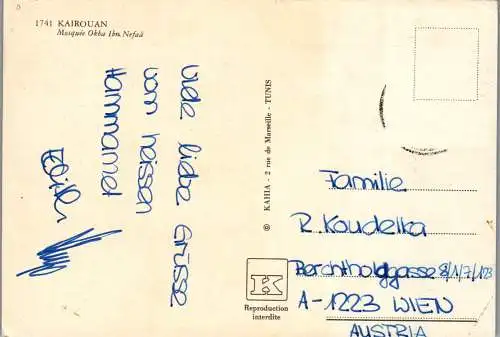 1741 KAIROUAN
Mosquée Okba Ibn Nefaâ
viele liebe Grüsse
vom heissen
Hammamet
© KAHIA - 2 rue de Marseille - TUNIS
K
Reproduction
interdite
Familie
R. Koudelka
A-1223 WIEN
AUSTRIA